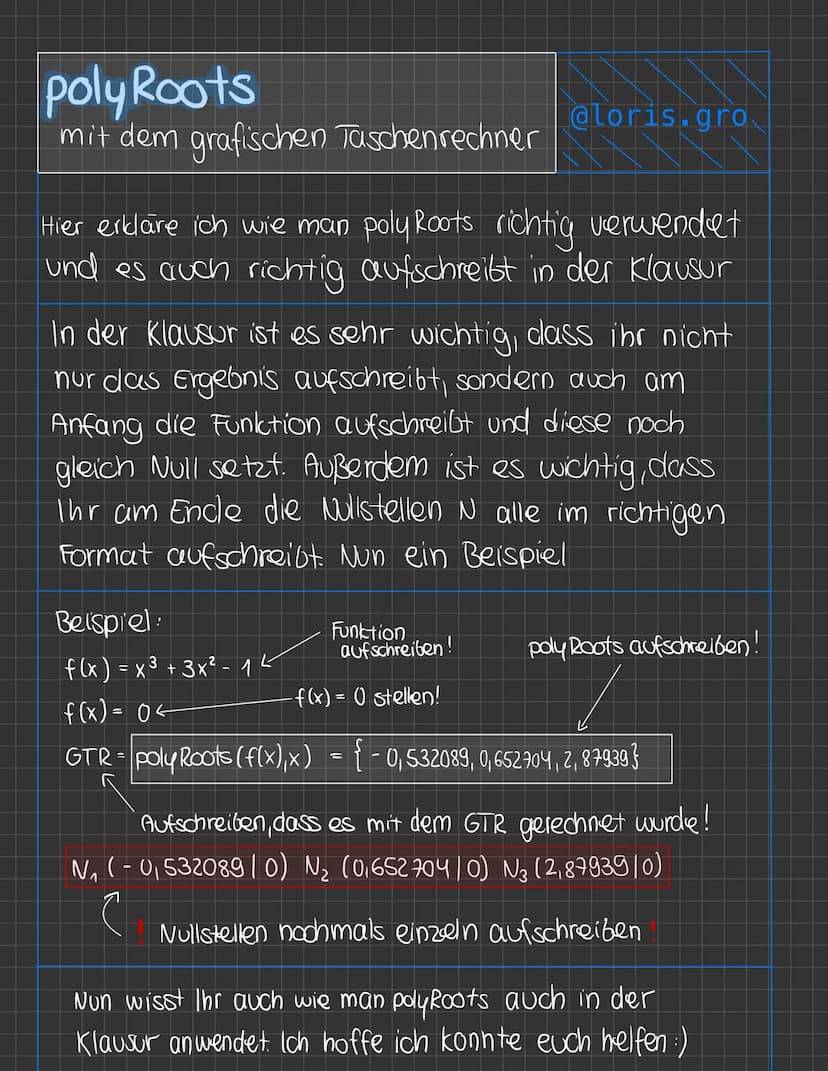 polyRoots
mit dem grafischen Taschenrechner
@loris.gro
Hier erkläre ich wie man polyRoots richtig verwendet
und es auch richtig aufschreibt in der Klausur
In der Klausur ist es sehr wichtig, dass ihr nicht
nur das Ergebnis aufschreibt, sondern auch am
Anfang die Funktion aufschreibt und diese noch
gleich Null setzt. Außerdem ist es wichtig, dass
Ihr am Ende die Nullstellen N alle im richtigen
Format aufschreibt. Nun ein Beispiel
Beispiel:
Funktion
aufschreiben!
polyRoots aufschreiben!
f(x) = x³ + 3x² - 1
f(x) = 0 stellen!
f(x) = 0
GTR = polyRoots(f(x),x) = {-0,532089, 0,652704, 2,87939}
Aufschreiben, dass es mit dem GTR gerechnet wurde!
N₁ (-0,532089|0) N₂ (0,652704|0) N₃ (2,87939|0)
! Nullstellen nochmals einzeln aufschreiben !
Nun wisst Ihr auch wie man polyRoots auch in der
Klausur anwendet. Ich hoffe ich konnte euch helfen :)